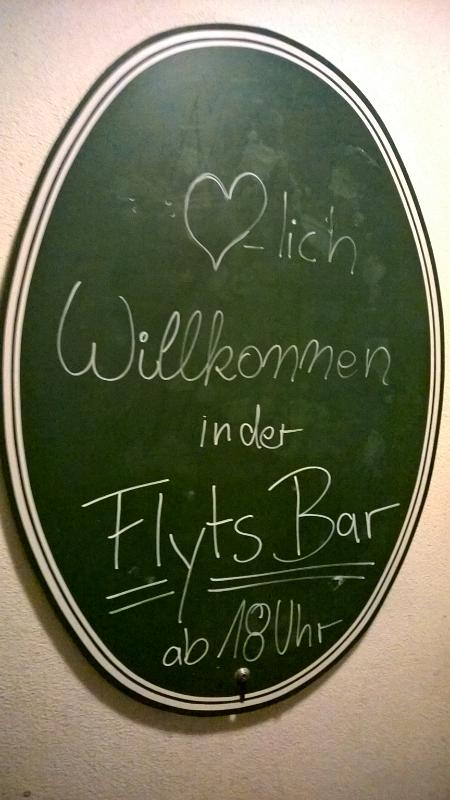 ♡-lich
Willkommen
in der
Flyts Bar
ab 18 Uhr